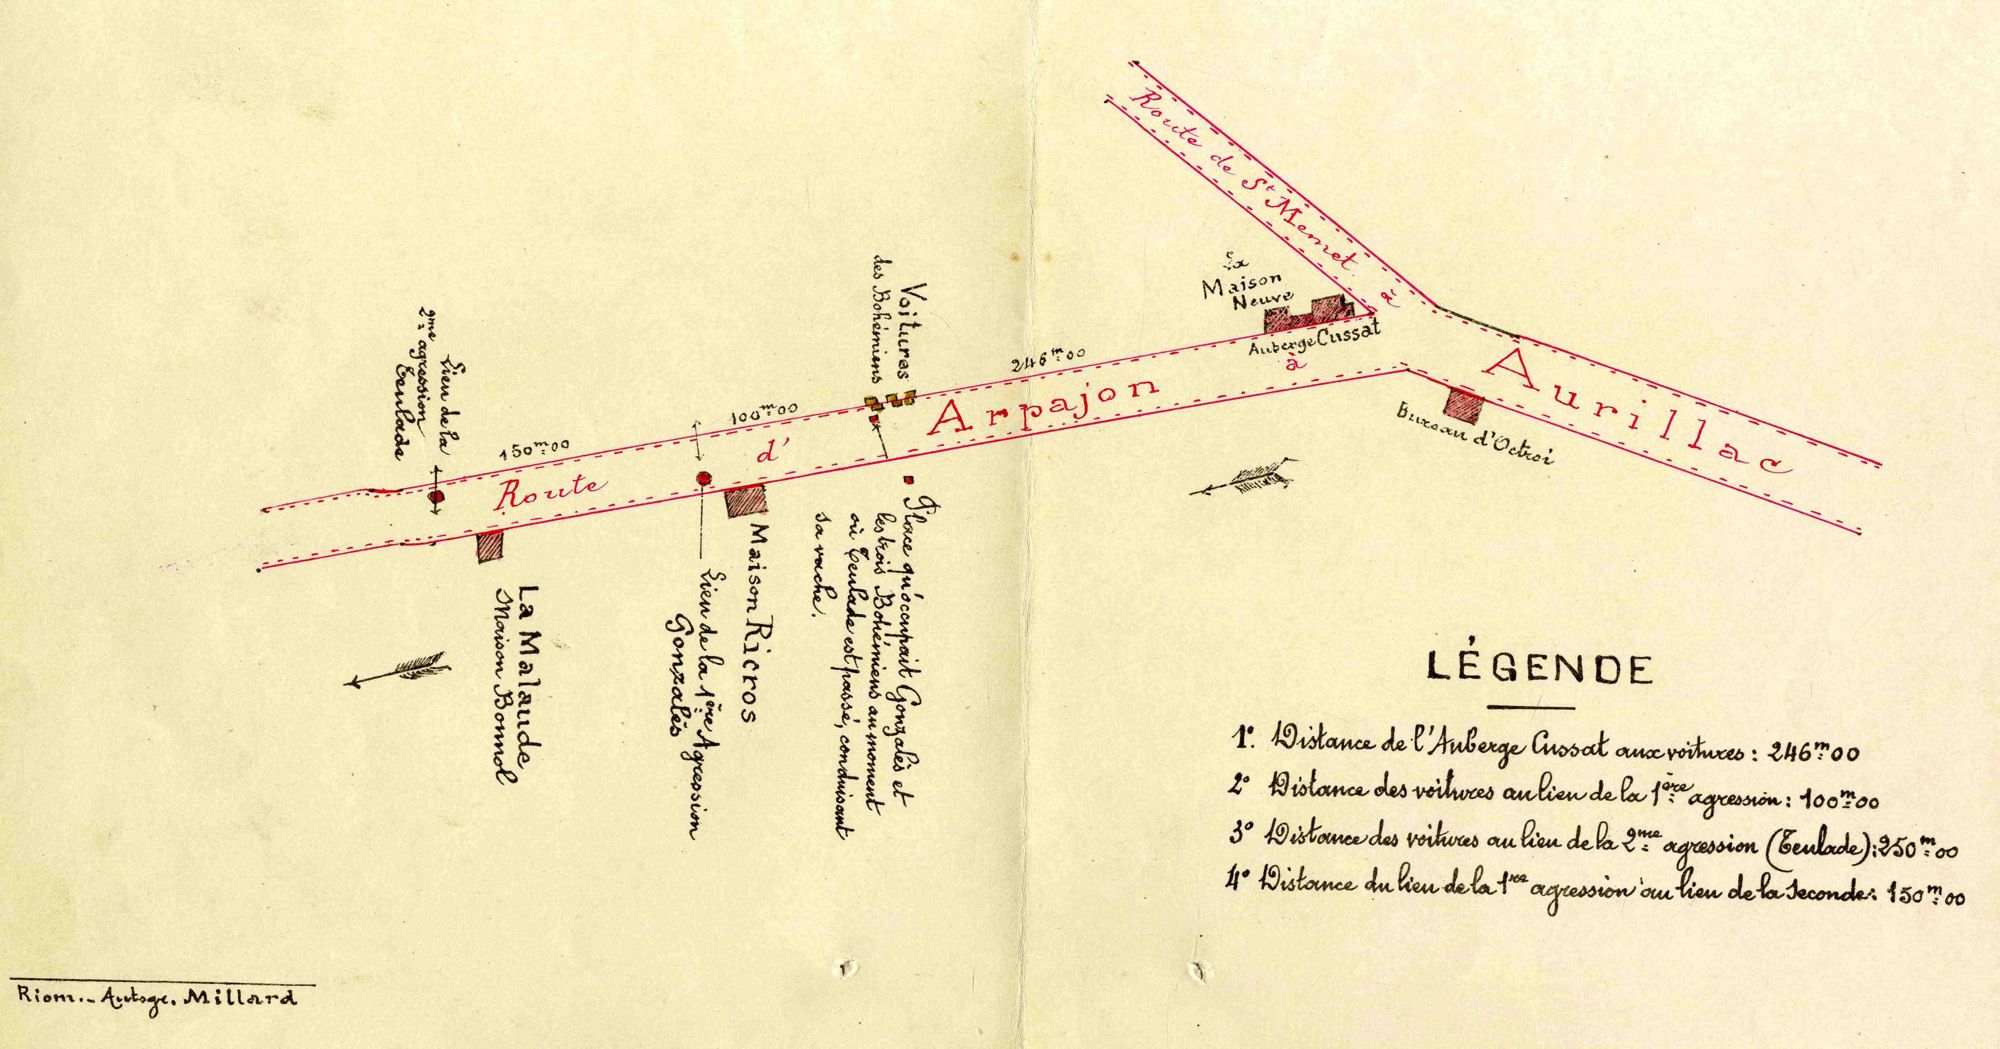 Route de St Memet
à
La
Maison
Neuve
Auberge Cussat
à
Aurillac
Bureau d'Octroi
246m00
Arpajon
Voitures
des Bohémiens
100m00
d'
150m00
Route
Lieu de la
2me agression
Teulade
Place qu'occupait Gonzalès et
les trois Bohémiens au moment
où Teulade est passé, conduisant
sa vache.
Maison Ricros
Lieu de la 1ère Agression
Gonzalès
La Malaude
Maison Bonnol
LÉGENDE
1°. Distance de l'Auberge Cussat aux voitures : 246m00
2° Distance des voitures au lieu de la 1ère agression : 100m00
3° Distance des voitures au lieu de la 2me agression (Teulade) : 250m00
4° Distance du lieu de la 1re agression au lieu de la seconde : 150m00
Riom._ Autogr. Millard